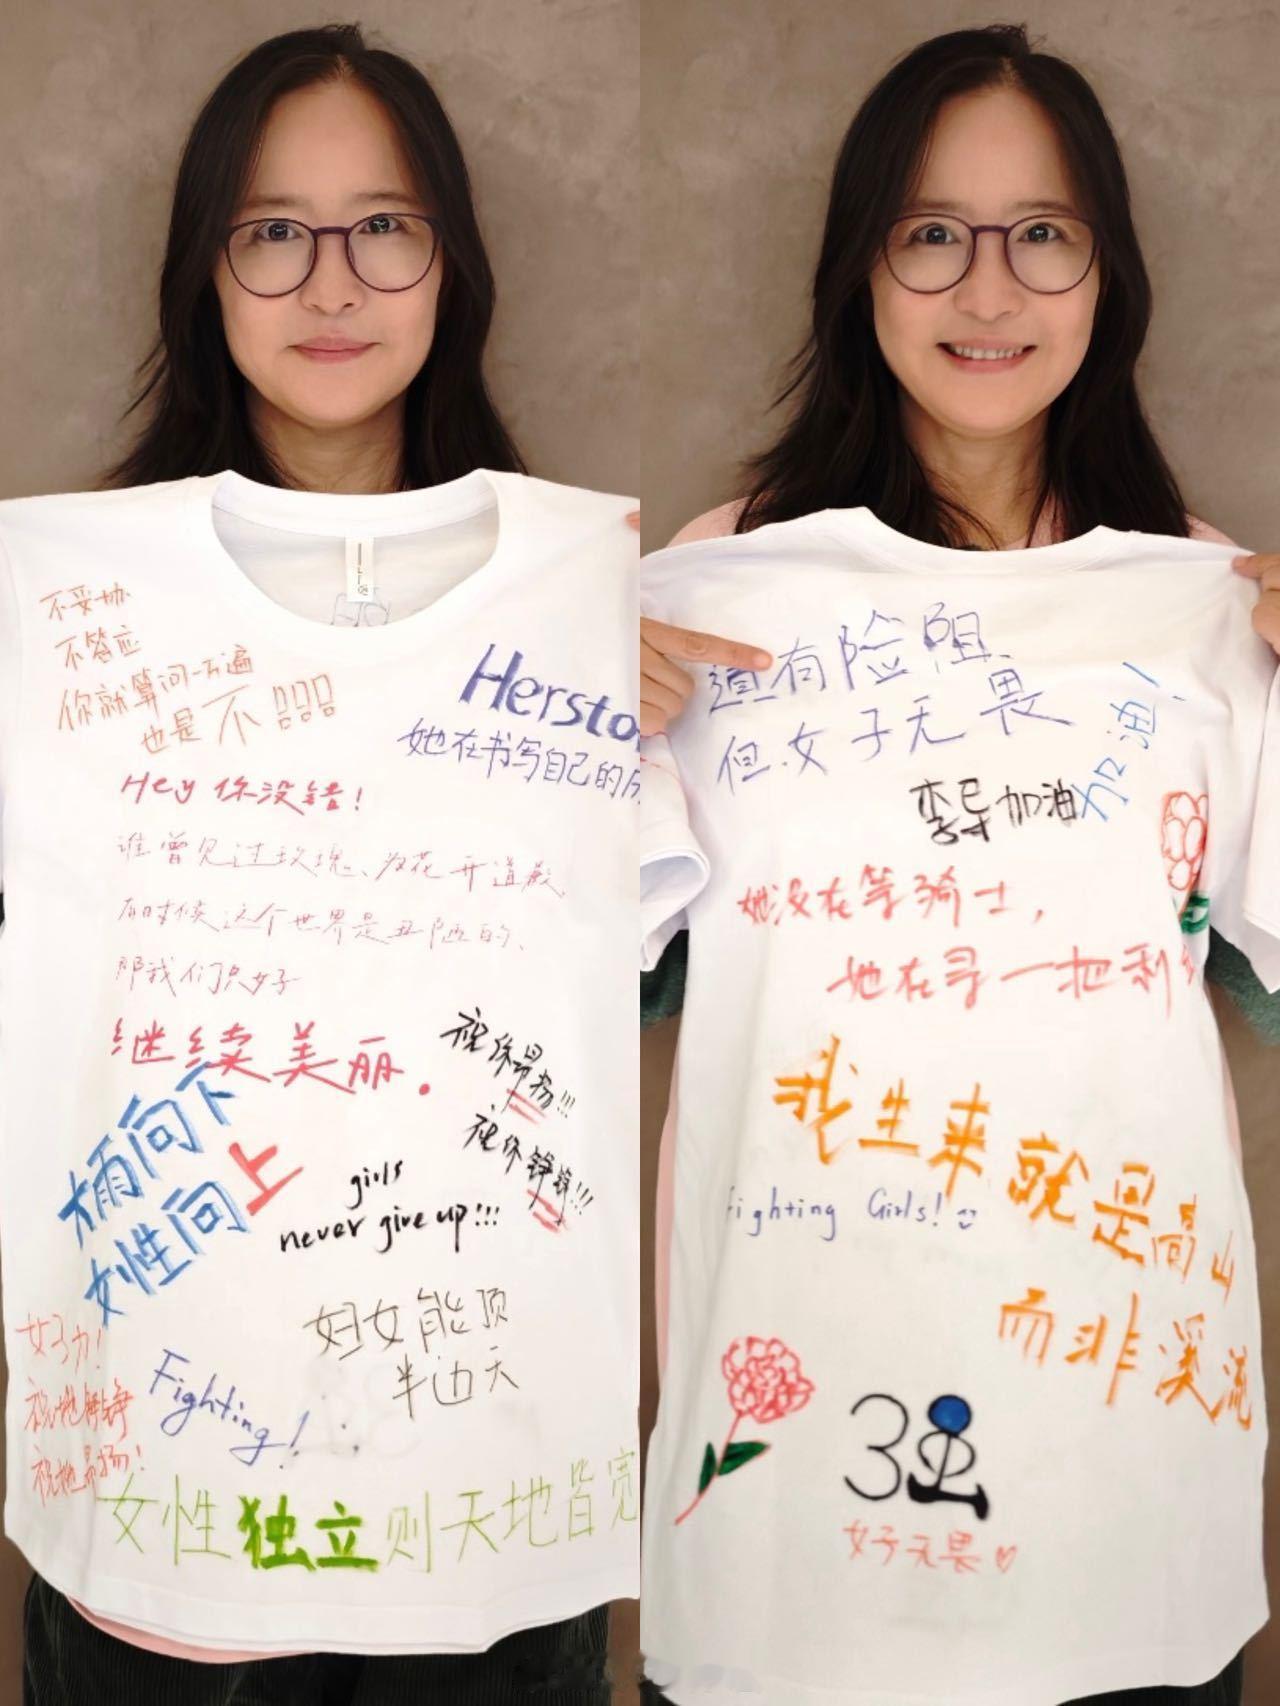 不妥协
不答应
你就算问一万遍
也是不!!!!
Herst
她在书写自己的
Hey 你没错!
谁曾见过玫瑰、为花开道歉、
有时候这个世界是丑陋的、
那我们只好
继续美丽.
祝你昂扬!!!
祝你铮铮!!!
向下
女性向上
girls
never give up!!!
妇女能顶
半边天
女子力!
祝她铮铮
祝她昂扬!
Fighting!
女性独立则天地皆宽
道有险阻
但女子无畏
加油!
李导加油
她没在等骑士,
她在寻一把利
我生来就是高山
而非溪流
Fighting Girls!
3
女子无畏